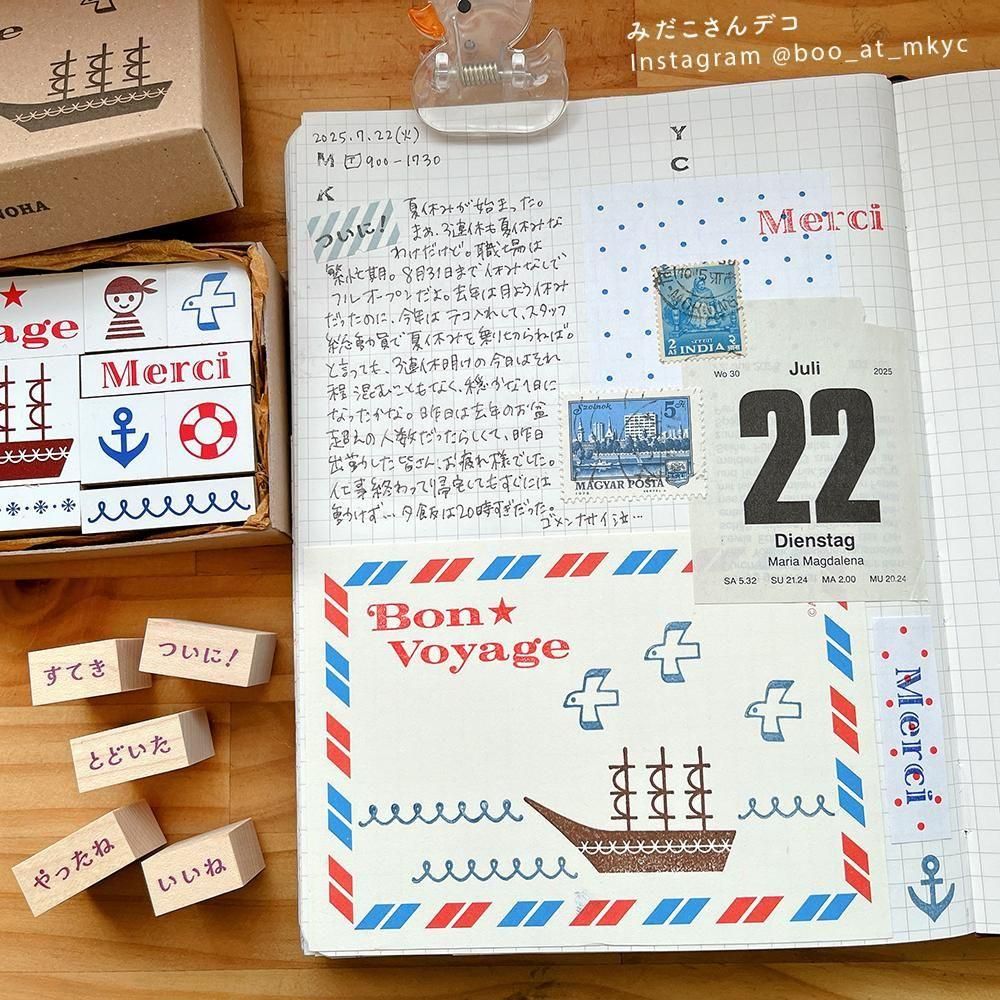 みだこさんデコ
Instagram @boo_at_mkyc
NOHA
age
Merci
すてき
ついに!
とどいた
やったね
いいね
2025.7.22(火)
M 900-1730
K
Y
C
ついに!
夏休みが始まった。
まぁ、3連休も夏休みな
わけだけど。職場は
繁忙期。8月31日まで休みなしで
フルオープンだよ。去年は月よう休み
だったのに、今年は テコ入れして、スタッフ
総動員で夏休みを乗り切らねば。
と言っても、3連休明けの今日はそれ
程混むこともなく、穏かな1日に
なったかな。昨日は去年のお盆
超えの人数だったらしくて、昨日
出勤した皆さん、お疲れ様でした。
仕事終わって帰宅してもすぐには
動けず…夕飯は20時すぎだった。
ゴメンナサイ泣…
Merci
2 AS INDIA
Szolnok 5 Ft
MAGYAR POSTA
Wo 30 Juli 2025
22
Dienstag
Maria Magdalena
SA 5.32 SU 21.24 MA 2.00 MU 20.24
Bon★
Voyage
Merci